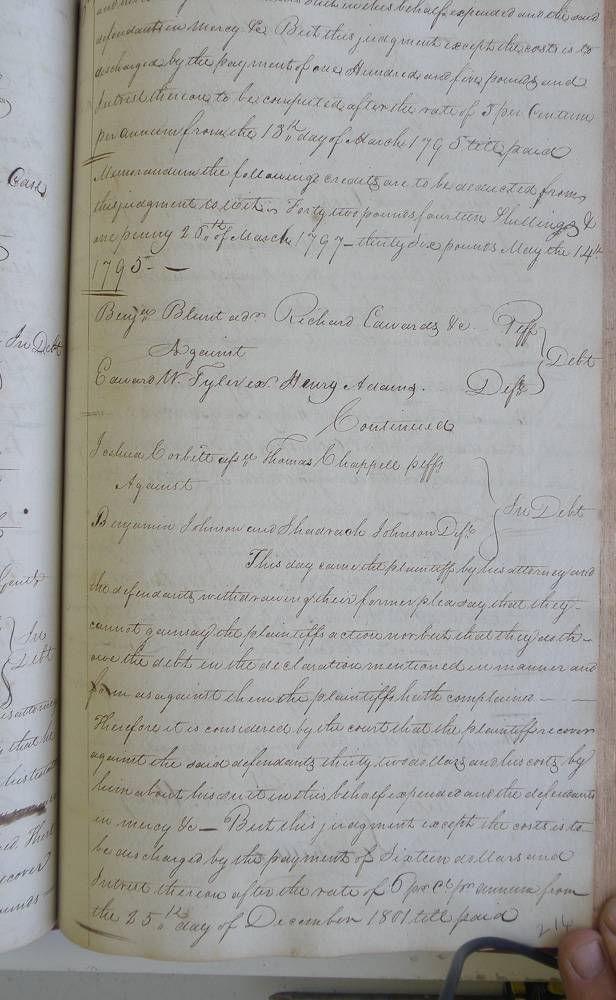 in this behalf expended and the said
defendants in mercy &c But this judgment except the costs is to
discharged by the payment of one Hundred and five pounds and
Interest thereon to be computed after the rate of 5 per Centum
per annum from the 13th day of March 1795 till paid
Memorandum the following credits are to be deducted from
this judgment to wit Forty two pounds fourteen Shillings &
one penny 26th of March 1797 – thirty Six pounds May the 14th
1795 –
Benjan Blunt adr Richard Edwards &c. Ptff
Against
Debt
Edward W. Tyler ex. Henry Adams. Deft
Continued
Joshua Corbitt assee Thomas Chappell ptff
Against
In Debt
Benjamin Johnson and Shadrach Johnson Defts
This day came the plaintiff by his attorney and
the defendants withdrawing their former plea say that they –
cannot gainsay the plaintiffs action nor but that they doth –
owe the debt in the declaration mentioned in manner and
form as against them the plaintiff hath complained – –
Therefore it is considered by the court that the plaintiff recover
against the said defendants thirty two dollars and his costs by
him about his suit in this behalf expended and the defendants
in mercy &c – But this judgment except the costs is to
be discharged by the payment of Sixteen dollars and
Interest thereon after the rate of 6 pr Ct pr annum from
the 25th day of December 1801 till paid
214
Case
In Debt
Gent
In
Debt